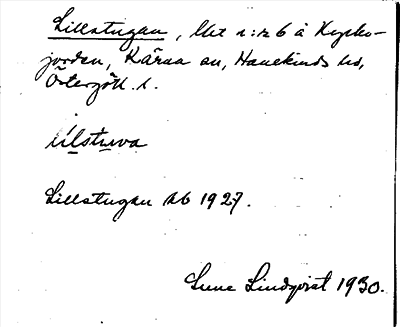 Lillstugan, lht 1:26 å Kyrko-
jorden, Kärna sn, Hanekinds hd,
Östergötl. l.
lilstuva
Lillstugan Jb 1927.
Sune Lindqvist 1930.